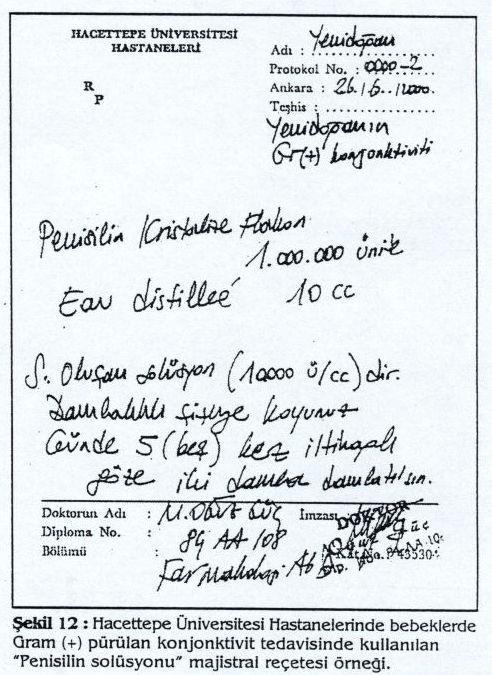 HACETTEPE ÜNİVERSİTESİ
HASTANELERİ
R
P
Adı : Yenidoğan
Protokol No. : 0000-2
Ankara : 26.6.2000
Teşhis :
Yenidoğanın
Gr(+) konjonktiviti
Penisilin Kristalize Flakon
1.000.000 ünite
Eau distilleé 10 cc
S. Oluşan solüsyon (10000 ü/cc) dir.
Damlalıklı şişeye koyunuz
Günde 5 (beş) kez iltihaplı
göze iki damla damlatılsın.
Doktorun Adı : M. Oğuz Güç İmzası
Diploma No. : 84 AA 108
Bölümü : Farmakoloji
DOKTOR
Şekil 12 : Hacettepe Üniversitesi Hastanelerinde bebeklerde
Gram (+) pürülan konjonktivit tedavisinde kullanılan
"Penisilin solüsyonu" majistral reçetesi örneği.